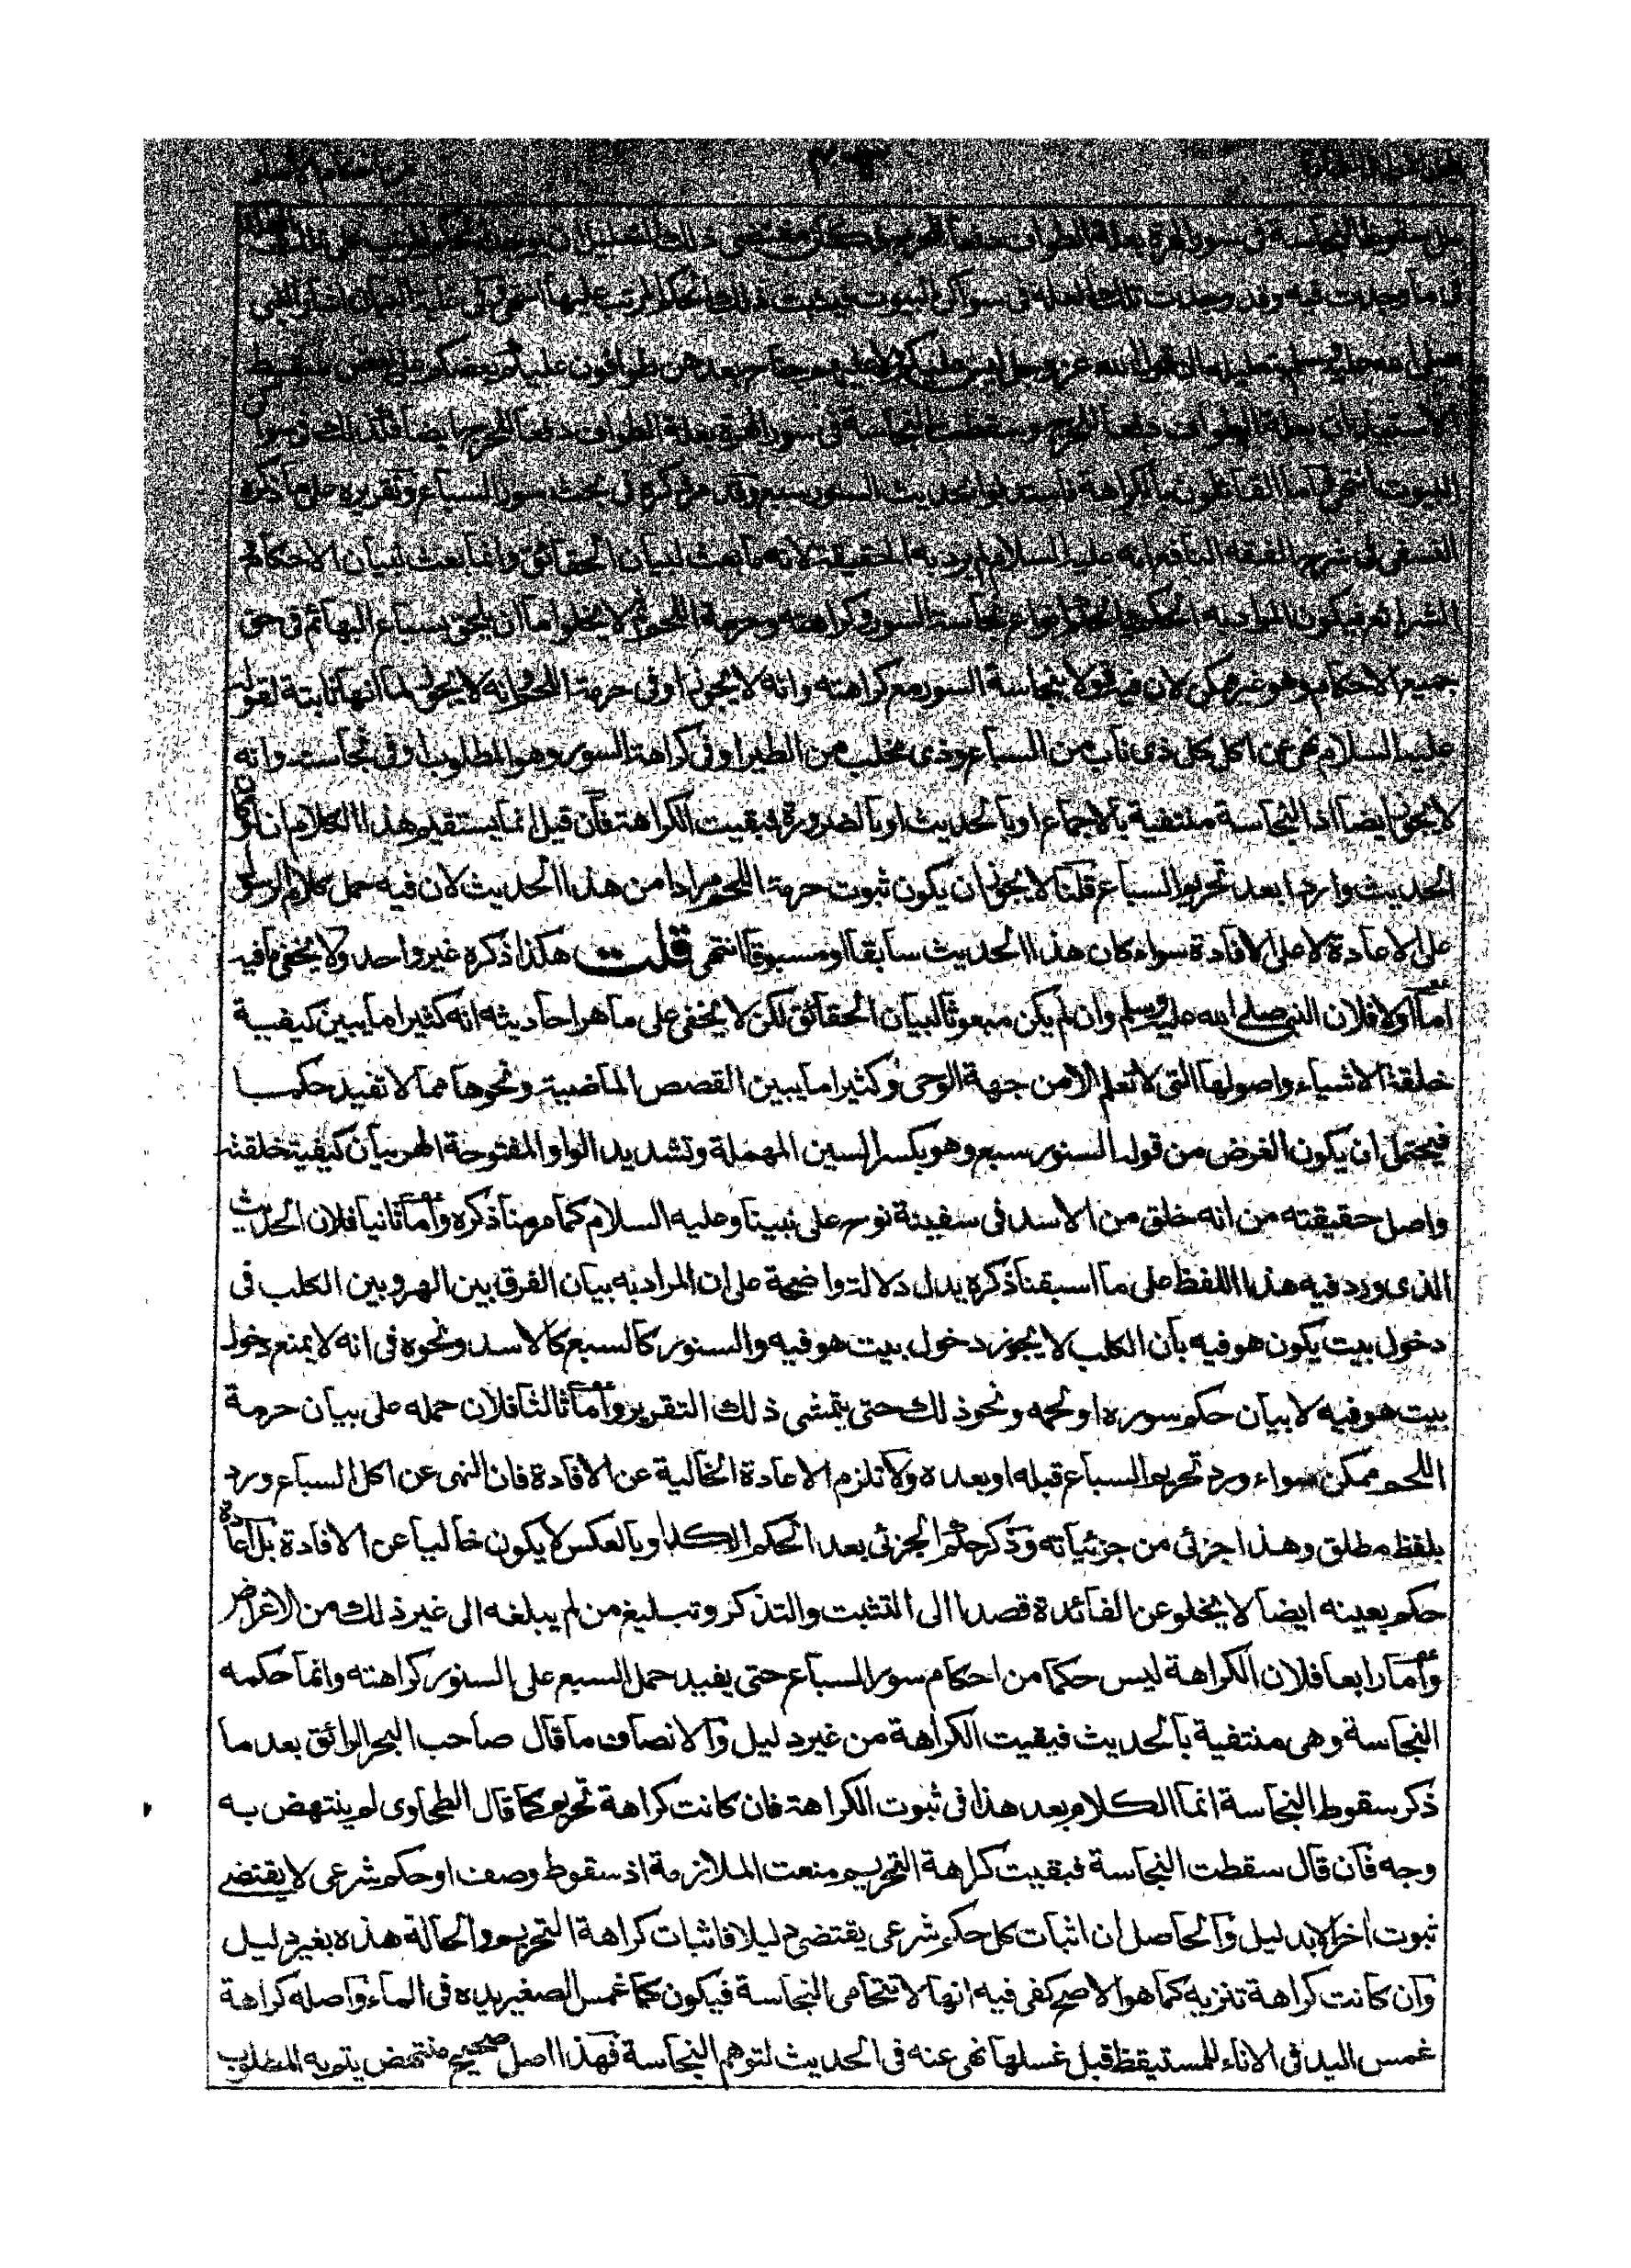 على سقوط النجاسة فى سور الهرة بعلة الطواف دفعا للحرج
فى ما وجدت فيه وقد وجدت تلك العلة فى سواكن البيوت فيثبت ذلك الحكم المرتب عليها انتهى
صلى الله عليه وسلم قوله الله عز وجل ليس عليكم ولا عليهم جناح بعدهن طوافون عليكم بعضكم على بعض
الاستيذان بعلة الطواف دفعا للحرج وسقطت النجاسة فى سور الهرة بعلة الطواف دفعا للحرج ايضا فكذلك فى سواكن
البيوت انتهى واما القائلون بالكراهة فاستدلوا بحديث السنور سبع وقد مر ذكره فى بحث سور السباع وتقريره على ما ذكره
النسفى فى شرح الفقه النافع انه عليه السلام لم يرد به الحقيقة لانه ما بعث لبيان الحقائق وانما بعث لبيان الاحكام
الشرائع فيكون المراد به الحكم والحكم انواع نجاسة السور وكراهته وحرمة اللحم ثم لا يخلو اما ان يلحق بسباع البهائم فى حق
جميع الاحكام وهو غير ممكن لان فيه قولا بنجاسة السور مع كراهته وانه لا يجوز او فى حرمة اللحم وانه لا يجوز لما انها ثابتة لقوله
عليه السلام نهى عن اكل كل ذى ناب من السباع وذى مخلب من الطير او فى كراهة السور وهو المطلوب او فى نجاسته وانه
لا يجوز ايضا اذ النجاسة منتفية بالاجماع او بالحديث او بالضرورة فبقيت الكراهة فان قيل انما يستقيم هذا الكلام ان لو كان
الحديث واردا بعد تحريم السباع قلنا لا يجوز ان يكون ثبوت حرمة اللحم مرادا من هذا الحديث لان فيه حمل كلام الرسول
على الاعادة لا على الافادة سواء كان هذا الحديث سابقا او مسبوقا انتهى قلت هكذا ذكره غير واحد ولا يخفى ما فيه
اما اولا فلان النبى صلى الله عليه وسلم وان لم يكن مبعوثا لبيان الحقائق لكن لا يخفى على ماهر احاديثه انه كثيرا ما يبين كيفية
خلقة الاشياء واصولها التى لا تعلم الا من جهة الوحى وكثيرا ما يبين القصص الماضية ونحوها مما لا تفيد حكما
فيحتمل ان يكون الغرض من قوله السنور سبع وهو بكسر السين المهملة وتشديد الواو المفتوحة الهر بيان كيفية خلقته
واصل حقيقته من انه خلق من الاسد فى سفينة نوح على نبينا وعليه السلام كما مر منا ذكره واما ثانيا فلان الحديث
الذى ورد فيه هذا اللفظ على ما اسبقنا ذكره يدل دلالة واضحة على ان المراد به بيان الفرق بين الهر وبين الكلب فى
دخول بيت يكون هو فيه بان الكلب لا يجوز دخول بيت هو فيه والسنور كالسبع كالاسد ونحوه فى انه لا يمنع دخول
بيت هو فيه لا بيان حكم سوره او لحمه ونحو ذلك حتى يتمشى ذلك التقرير واما ثالثا فلان حمله على بيان حرمة
اللحم ممكن سواء ورد تحريم السباع قبله او بعده ولا تلزم الاعادة الخالية عن الافادة فان النهى عن اكل السباع ورد
بلفظ مطلق وهذا جزئى من جزئياته وذكر حكم الجزئى بعد الحكم الكلى او بالعكس لا يكون خاليا عن الافادة بل اعادة
حكم بعينه ايضا لا يخلو عن الفائدة قصدا الى التثبت والتذكر وتبليغ من لم يبلغه الى غير ذلك من الاغراض
واما رابعا فلان الكراهة ليس حكما من احكام سور السباع حتى يفيد حمل السبع على السنور كراهته وانما حكمه
النجاسة وهى منتفية بالحديث فبقيت الكراهة من غير دليل والانصاف ما قال صاحب البحر الرائق بعد ما
ذكر سقوط النجاسة انما الكلام بعد هذا فى ثبوت الكراهة فان كانت كراهة تحريم كما قال الطحاوى لم ينتهض به
وجه فان قال سقطت النجاسة فبقيت كراهة التحريم منعت الملازمة اذ سقوط وصف او حكم شرعى لا يقتضى
ثبوت اخر الا بدليل والحاصل ان اثبات كل حكم شرعى يقتضى دليلا فاثبات كراهة التحريم والحالة هذه بغير دليل
وان كانت كراهة تنزيه كما هو الاصح كفى فيه انها لا تتحامى النجاسة فيكون كما غمس الصغير يده فى الماء واصله كراهة
غمس اليد فى الاناء للمستيقظ قبل غسلها نهى عنه فى الحديث لتوهم النجاسة فهذا اصل صحيح منتهض يتم به المطلوب